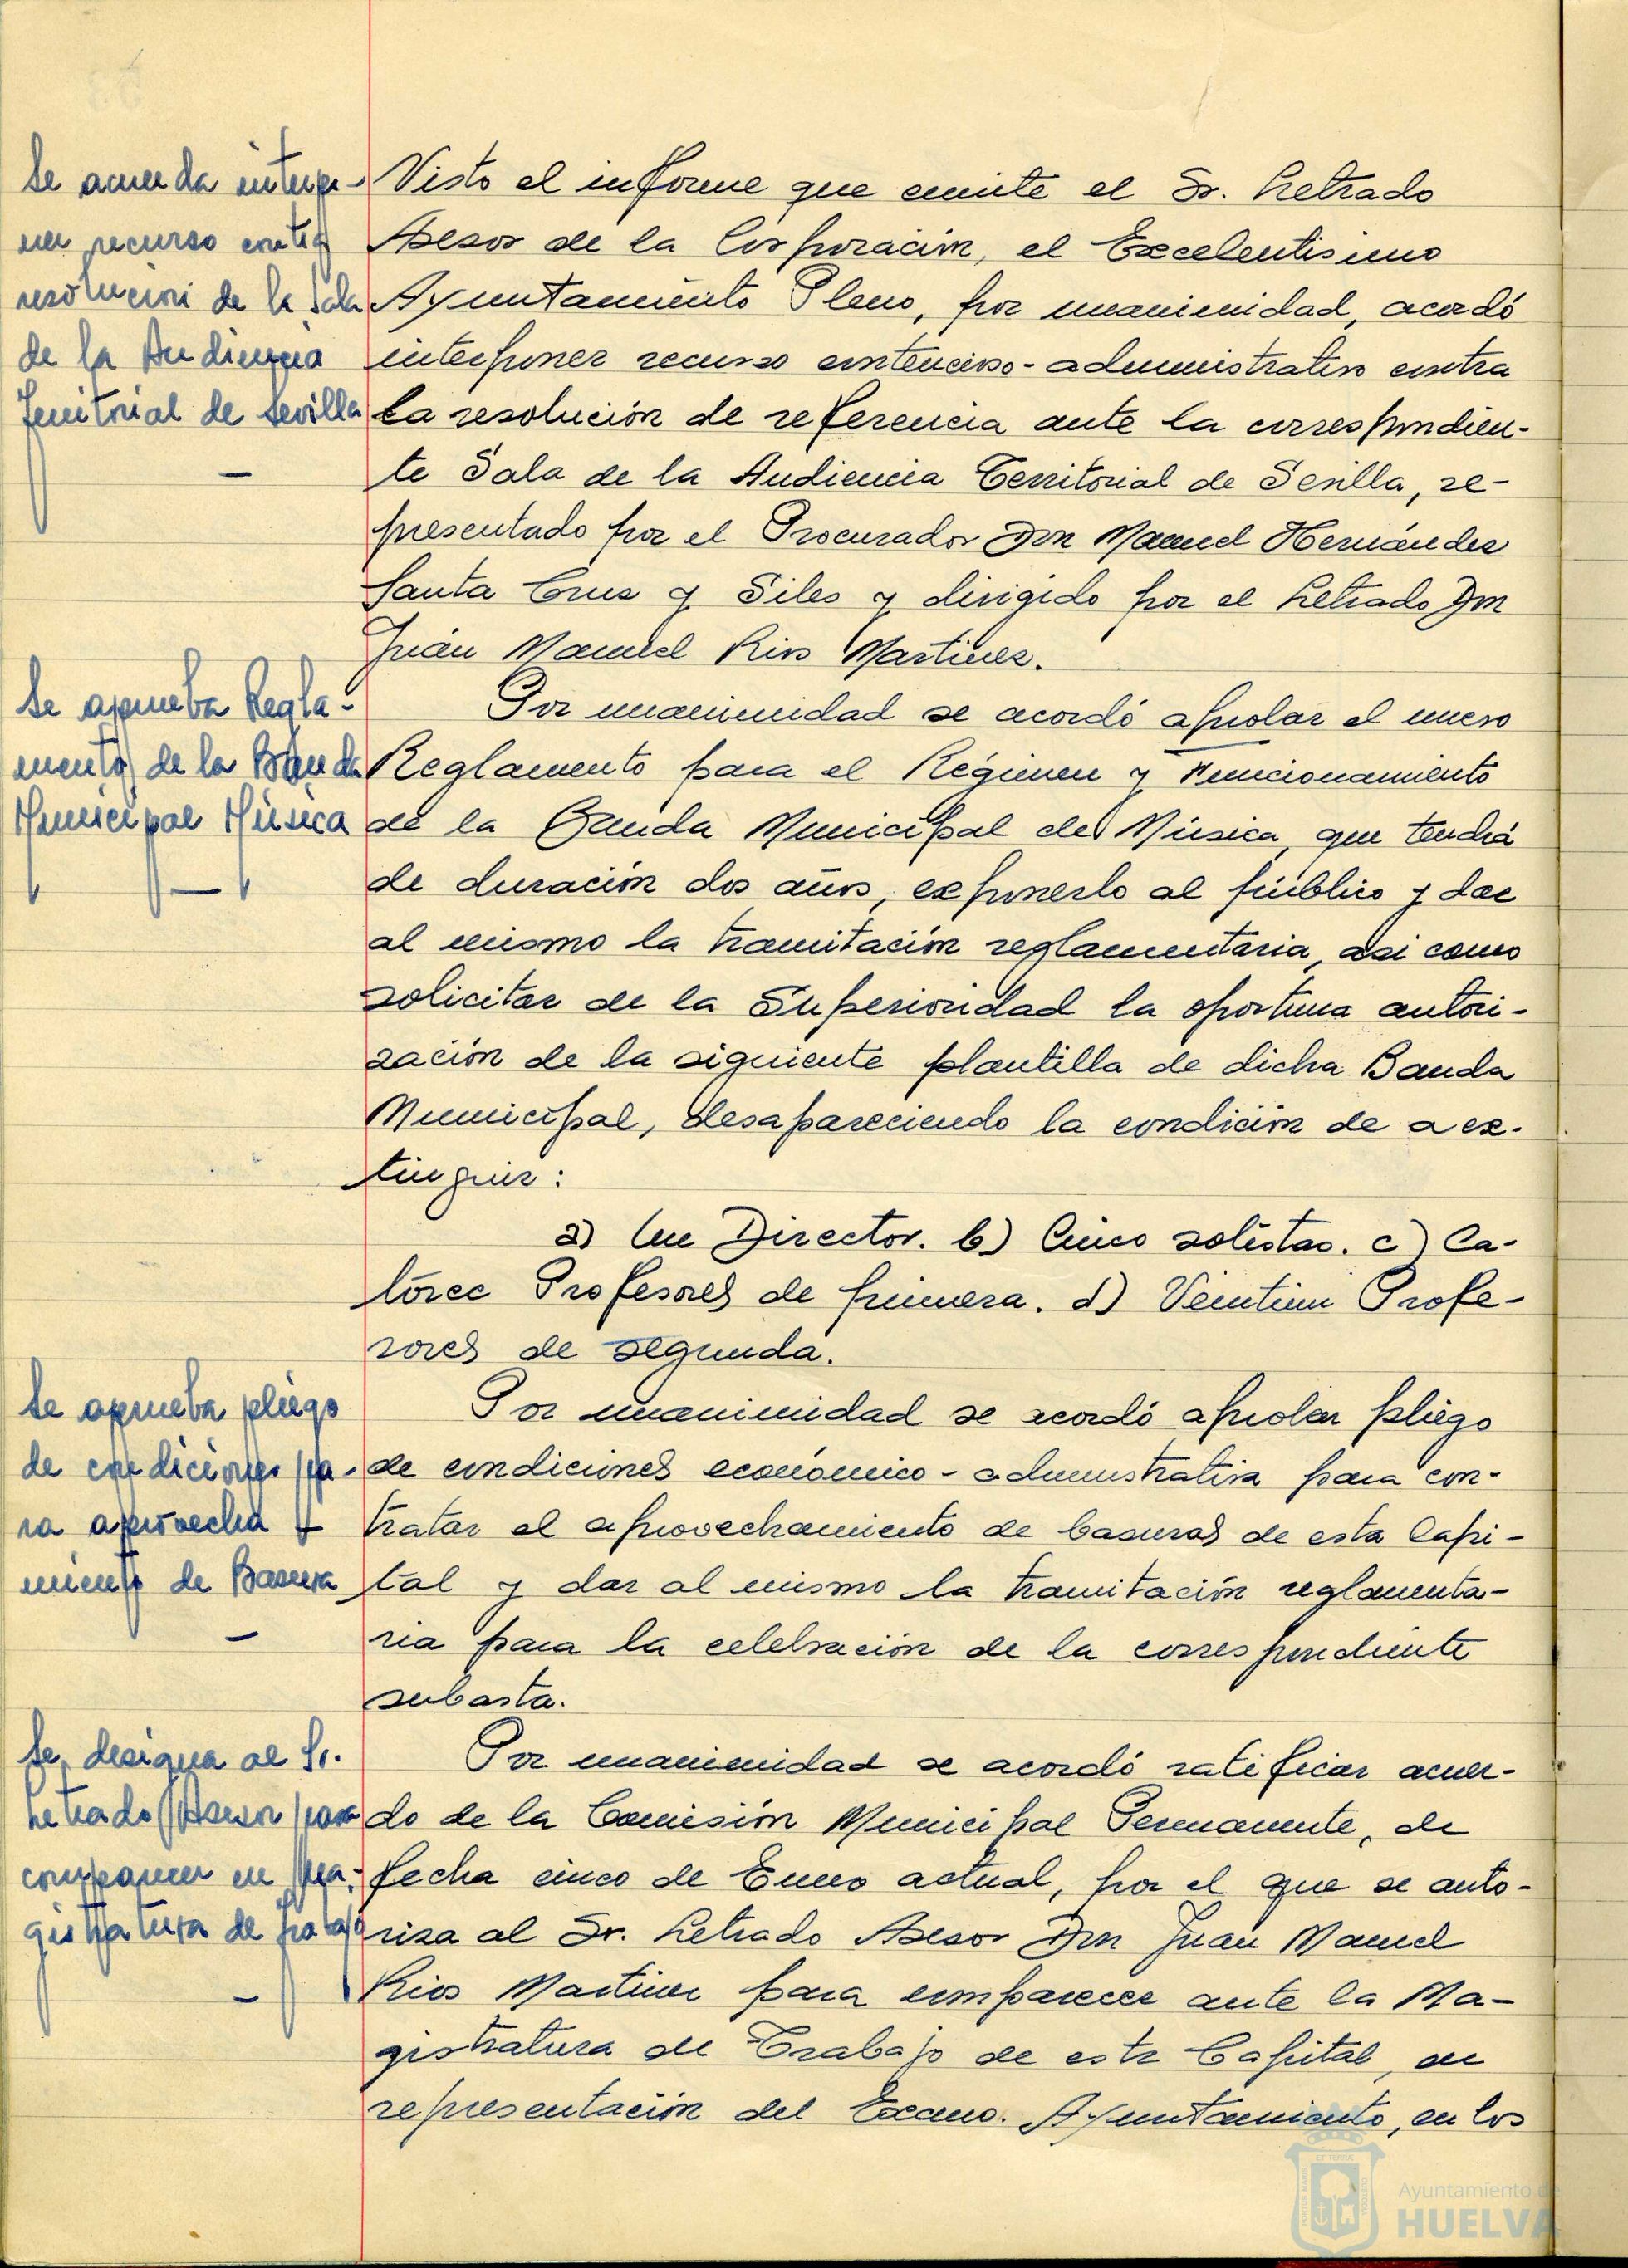 Se acuerda interpo-
ner recurso contra
resolución de la Sala
de la Audiencia
Territorial de Sevilla
Visto el informe que emite el Sr. Letrado
Asesor de la Corporación, el Excelentisimo
Ayuntamiento Pleno, por unanimidad, acordó
interponer recurso contencioso-administrativo contra
la resolución de referencia ante la correspondien-
te Sala de la Audiencia Territorial de Sevilla, re-
presentado por el Procurador Don Manuel Hernández
Santa Cruz y Siles y dirigido por el Letrado Don
Juan Manuel Rios Martinez.
Se aprueba Regla-
mento de la Banda
Municipal Música
Por unanimidad se acordó aprobar el nuevo
Reglamento para el Régimen y Funcionamiento
de la Banda Municipal de Música, que tendrá
de duración dos años, exponerlo al público y dar
al mismo la tramitación reglamentaria, asi como
solicitar de la Superioridad la oportuna autori-
zación de la siguiente plantilla de dicha Banda
Municipal, desapareciendo la condición de a ex-
tinguir:
a) Un Director. b) Cinco solistas. c) Ca-
torce Profesores de primera. d) Veintiun Profe-
sores de segunda.
Se aprueba pliego
de condiciones pa-
ra aprovecha-
miento de Basura
Por unanimidad se acordó aprobar pliego
de condiciones económico-administrativa para con-
tratar el aprovechamiento de basuras de esta Capi-
tal y dar al mismo la tramitación reglamenta-
ria para la celebración de la correspondiente
subasta.
Se designa al Sr.
Letrado Asesor para
comparecer en Ma-
gistratura de Trabajo
Por unanimidad se acordó ratificar acuer-
do de la Comisión Municipal Permanente, de
fecha cinco de Enero actual, por el que se auto-
riza al Sr. Letrado Asesor Don Juan Manuel
Rios Martinez para comparecer ante la Ma-
gistratura de Trabajo de esta Capital, en
representación del Excmo. Ayuntamiento, en los
Ayuntamiento de
HUELVA